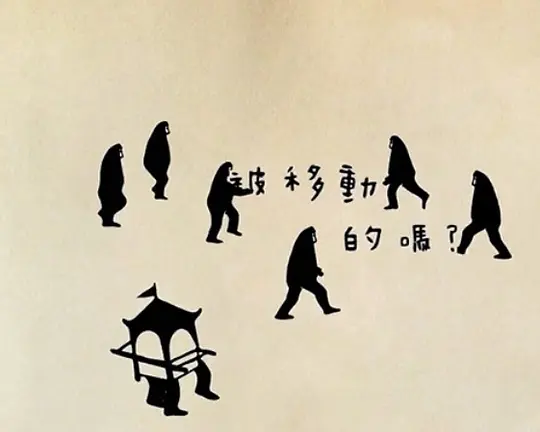 被移動
的嗎?